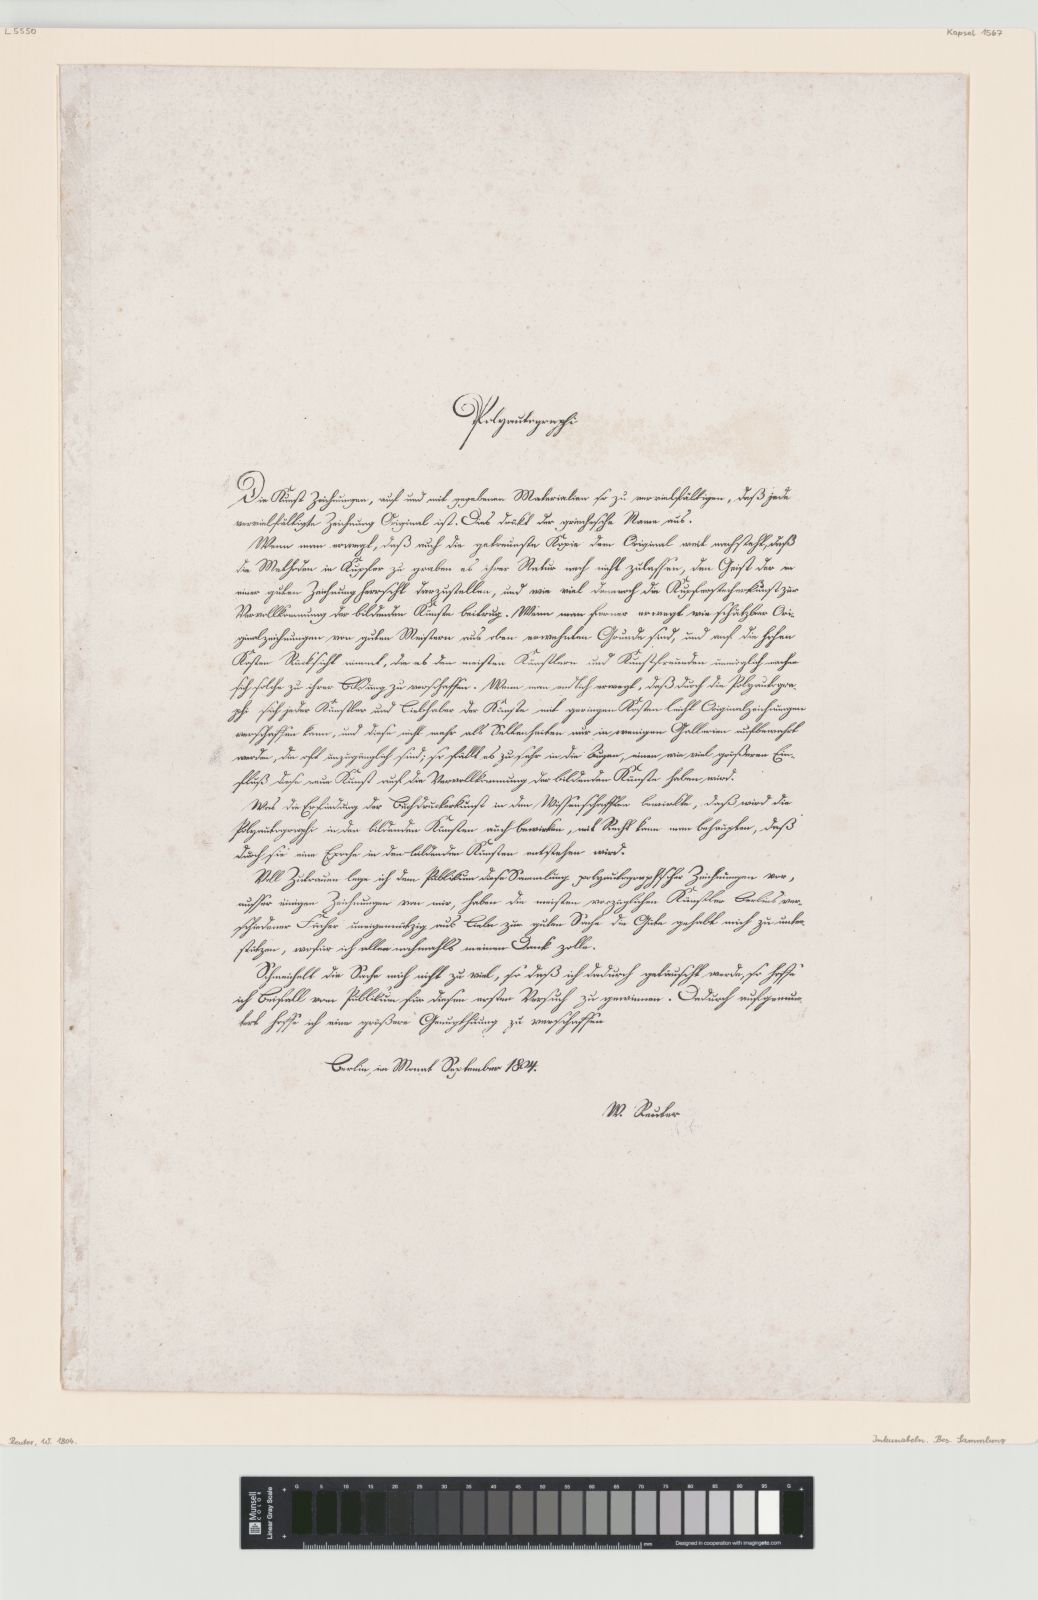 L 5550
Kapsel 1567
Polyautographi
Die Kunst Zeichnungen, auf und mit gegebenen Materialien so zu vervielfältigen, daß jede
vervielfältigte Zeichnung Original ist. Dies drukt der griechische Name aus.
Wenn man erwegt, daß auch die getreueste Kopie dem Original weit nachsteht, daß
die Methoden in Kupfer zu graben es ihrer Natur nach nicht zulassen, den Geist der in
einer guten Zeichnung herrscht darzustellen, und wie viel dennoch die Kupferstecherkunst zur
Vervollkommnung der bildenden Künste beitrug. Wenn man ferner erwegt wie schätzbar Ori-
ginalzeichnungen von guten Meistern aus eben erwehnten Grunde sind, und auf die hohen
Kosten Rücksicht nimmt, die es den meisten Künstlern und Kunstfreunden unmöglich machen
sich solche zu ihrer Bildung zu verschaffen. Wenn man endlich erwegt, daß durch die Polyautogra-
phi sich jeder Künstler und Liebhaber der Künste mit geringen Kosten leicht Originalzeichnungen
verschaffen kann, und diese nicht mehr als Seltenheiten nur in wenigen Gallerien aufbewahrt
werden, die oft unzugänglich sind; so fällt es zu sehr in die Augen, einen wie viel größeren Ein-
fluß diese neue Kunst auf die Vervollkommnung der bildenden Künste haben wird.
Was die Erfindung der Buchdruckerkunst in den Wissenschafften bewirkte, daß wird die
Polyautographi in den bildenden Künsten auch bewirken, mit Recht kann man behaupten, daß
durch sie eine Epoche in den bildenden Künsten entstehen wird.
Voll Zutrauen lege ich dem Publikum diese Sammlung polyautographischer Zeichnungen vor,
ausser einigen Zeichnungen von mir, haben die meisten vorzüglichen Künstler Berlins ver-
schiedener Fächer uneigennützig aus Liebe zur guten Sache die Güte gehabt mich zu unter-
stützen, wofür ich allen nochmahls meinen Dank zolle.
Schmeichelt die Sache mich nicht zu viel, so daß ich dadurch getäuscht werde, so hoffe
ich Beifall vom Publikum für diesen ersten Versuch zu gewinnen. Dadurch aufgemun-
tert hoffe ich eine größere Genugthuung zu verschaffen
Berlin, im Monat September 1804.
W. Reuter
Reuter, W. 1804.
Inkunabeln. Bes. Sammlung
Munsell
COLOR
Linear Gray Scale
G 5 10 15 20 25 30 35 40 45 50 55 60 65 70 75 80 85 90 95 G
mm
Designed in cooperation with imagingetc.com